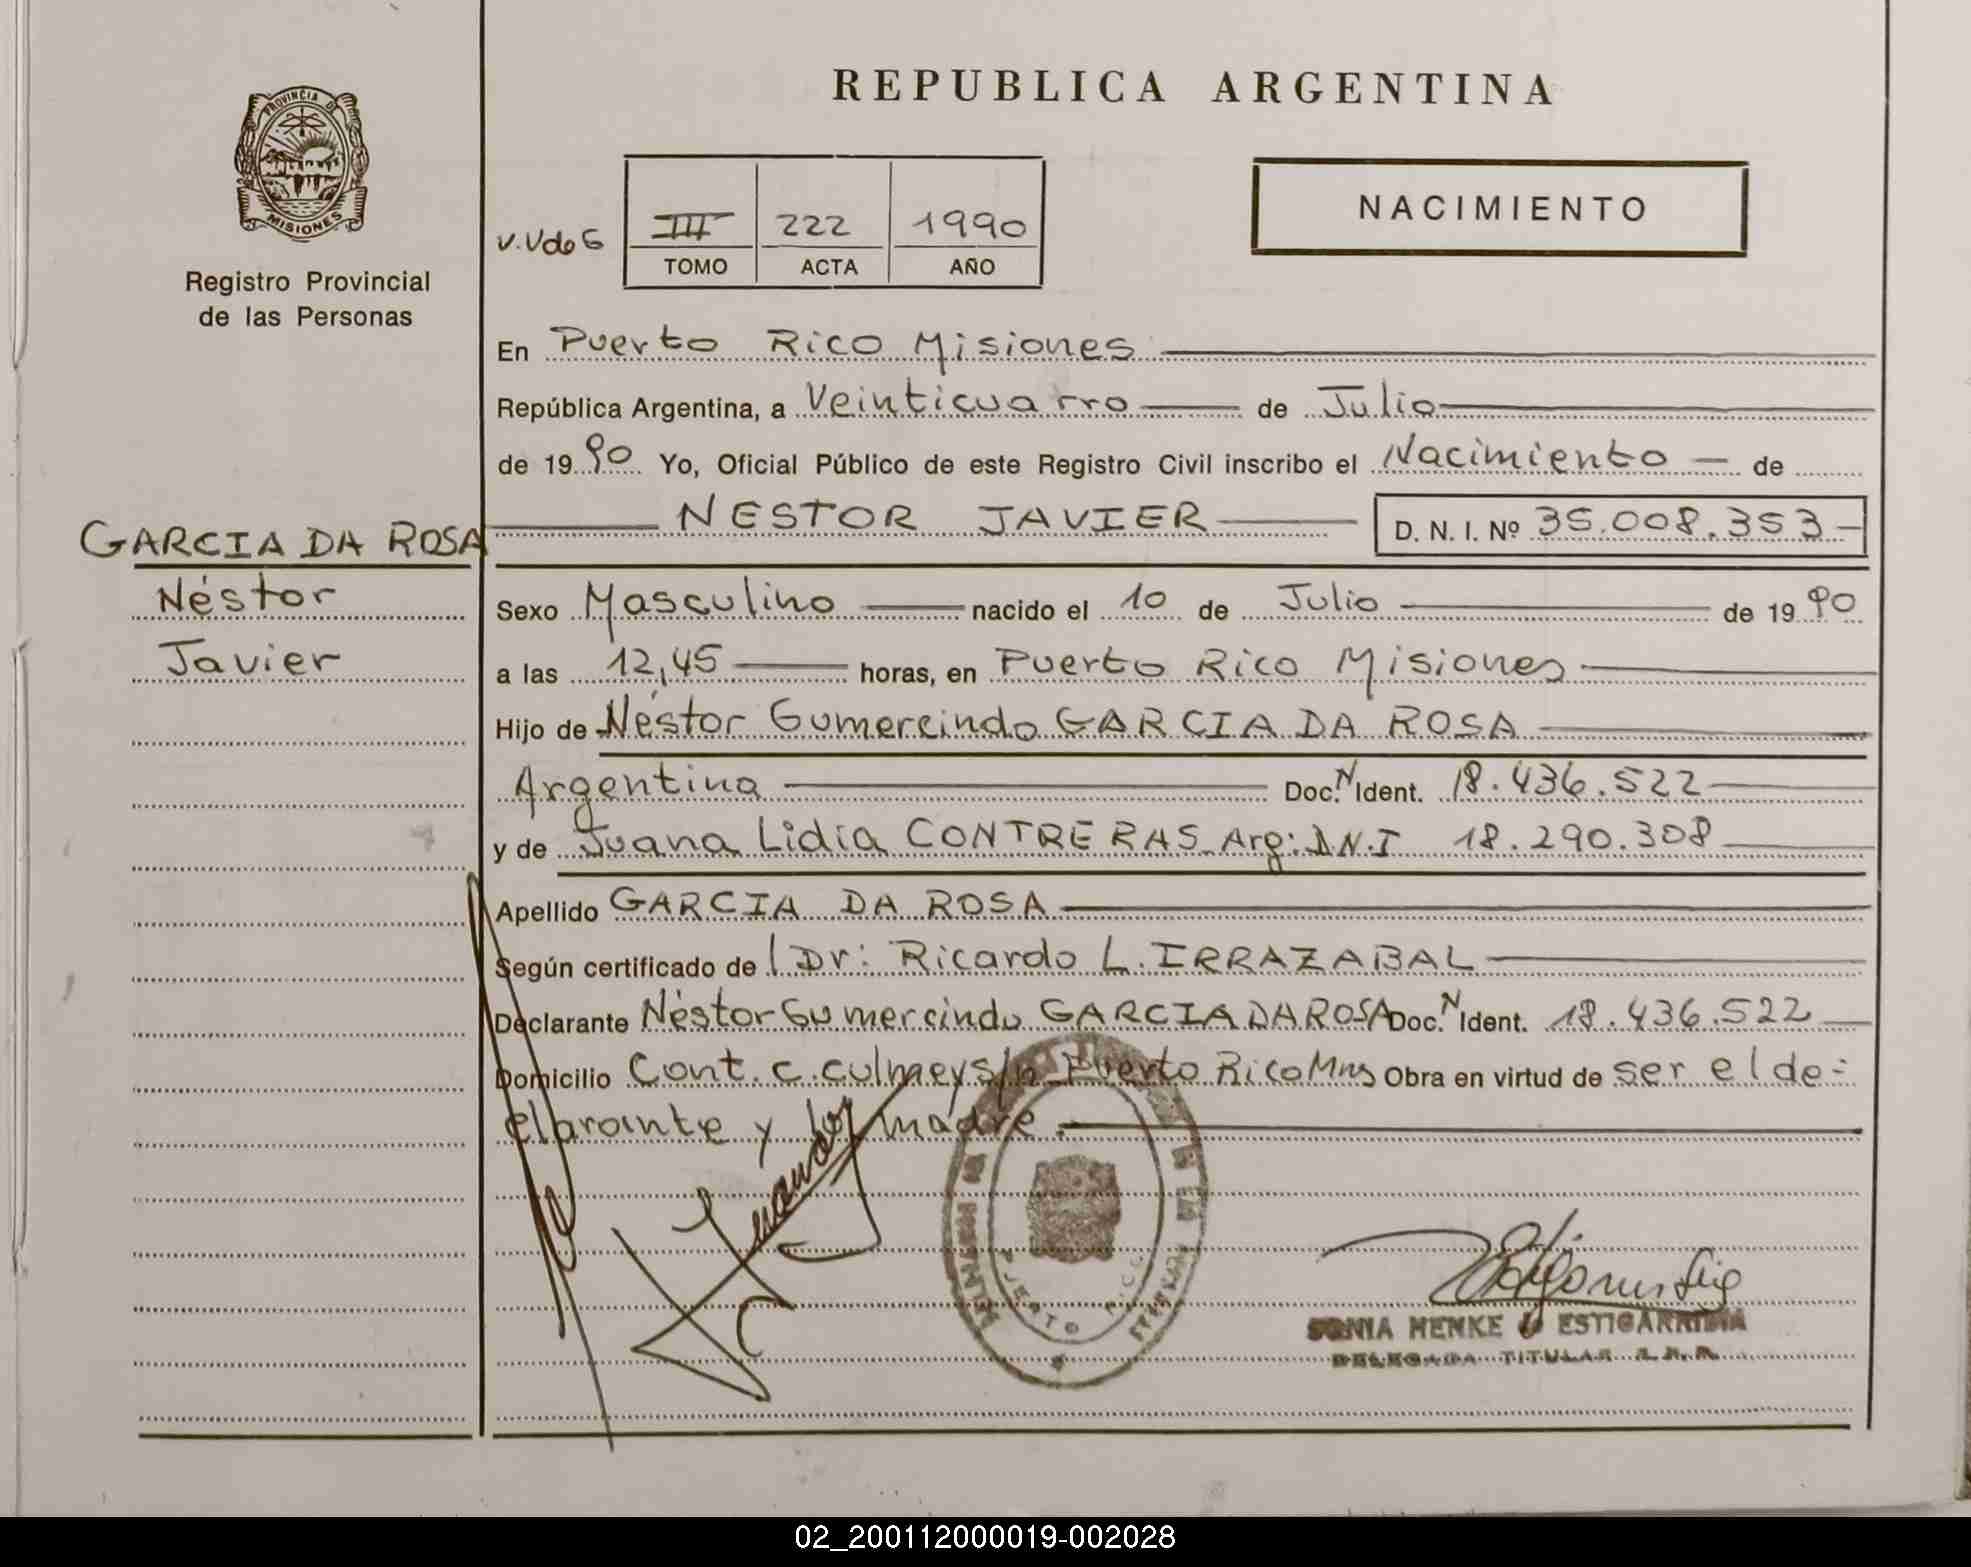 REPUBLICA ARGENTINA
PROVINCIA DE
MISIONES
Registro Provincial
de las Personas
III 222 1990
TOMO ACTA AÑO
NACIMIENTO
En Puerto Rico Misiones
República Argentina, a Veinticuatro de Julio
de 1990 Yo, Oficial Público de este Registro Civil inscribo el Nacimiento de
NESTOR JAVIER D. N. I. Nº 35.008.353
GARCIA DA ROSA
Néstor
Javier
Sexo Masculino nacido el 10 de Julio de 1990
a las 12,45 horas, en Puerto Rico Misiones
Hijo de Néstor Gumercindo GARCIA DA ROSA
Argentina Doc. N Ident. 18.436.522
y de Juana Lidia CONTRERAS Arg: D.N.I 18.290.308
Apellido GARCIA DA ROSA
Según certificado de Dr: Ricardo L. IRRAZABAL
Declarante Néstor Gumercindo GARCIA DA ROSA Doc. N Ident. 18.436.522
Domicilio Cont. c. culmey s/n Puerto Rico Mns Obra en virtud de ser el de=
clarante y la madre.
PUERTO RICO
SONIA MENKE D ESTIGARRIBIA
DELEGADA TITULAR
02_200112000019-002028